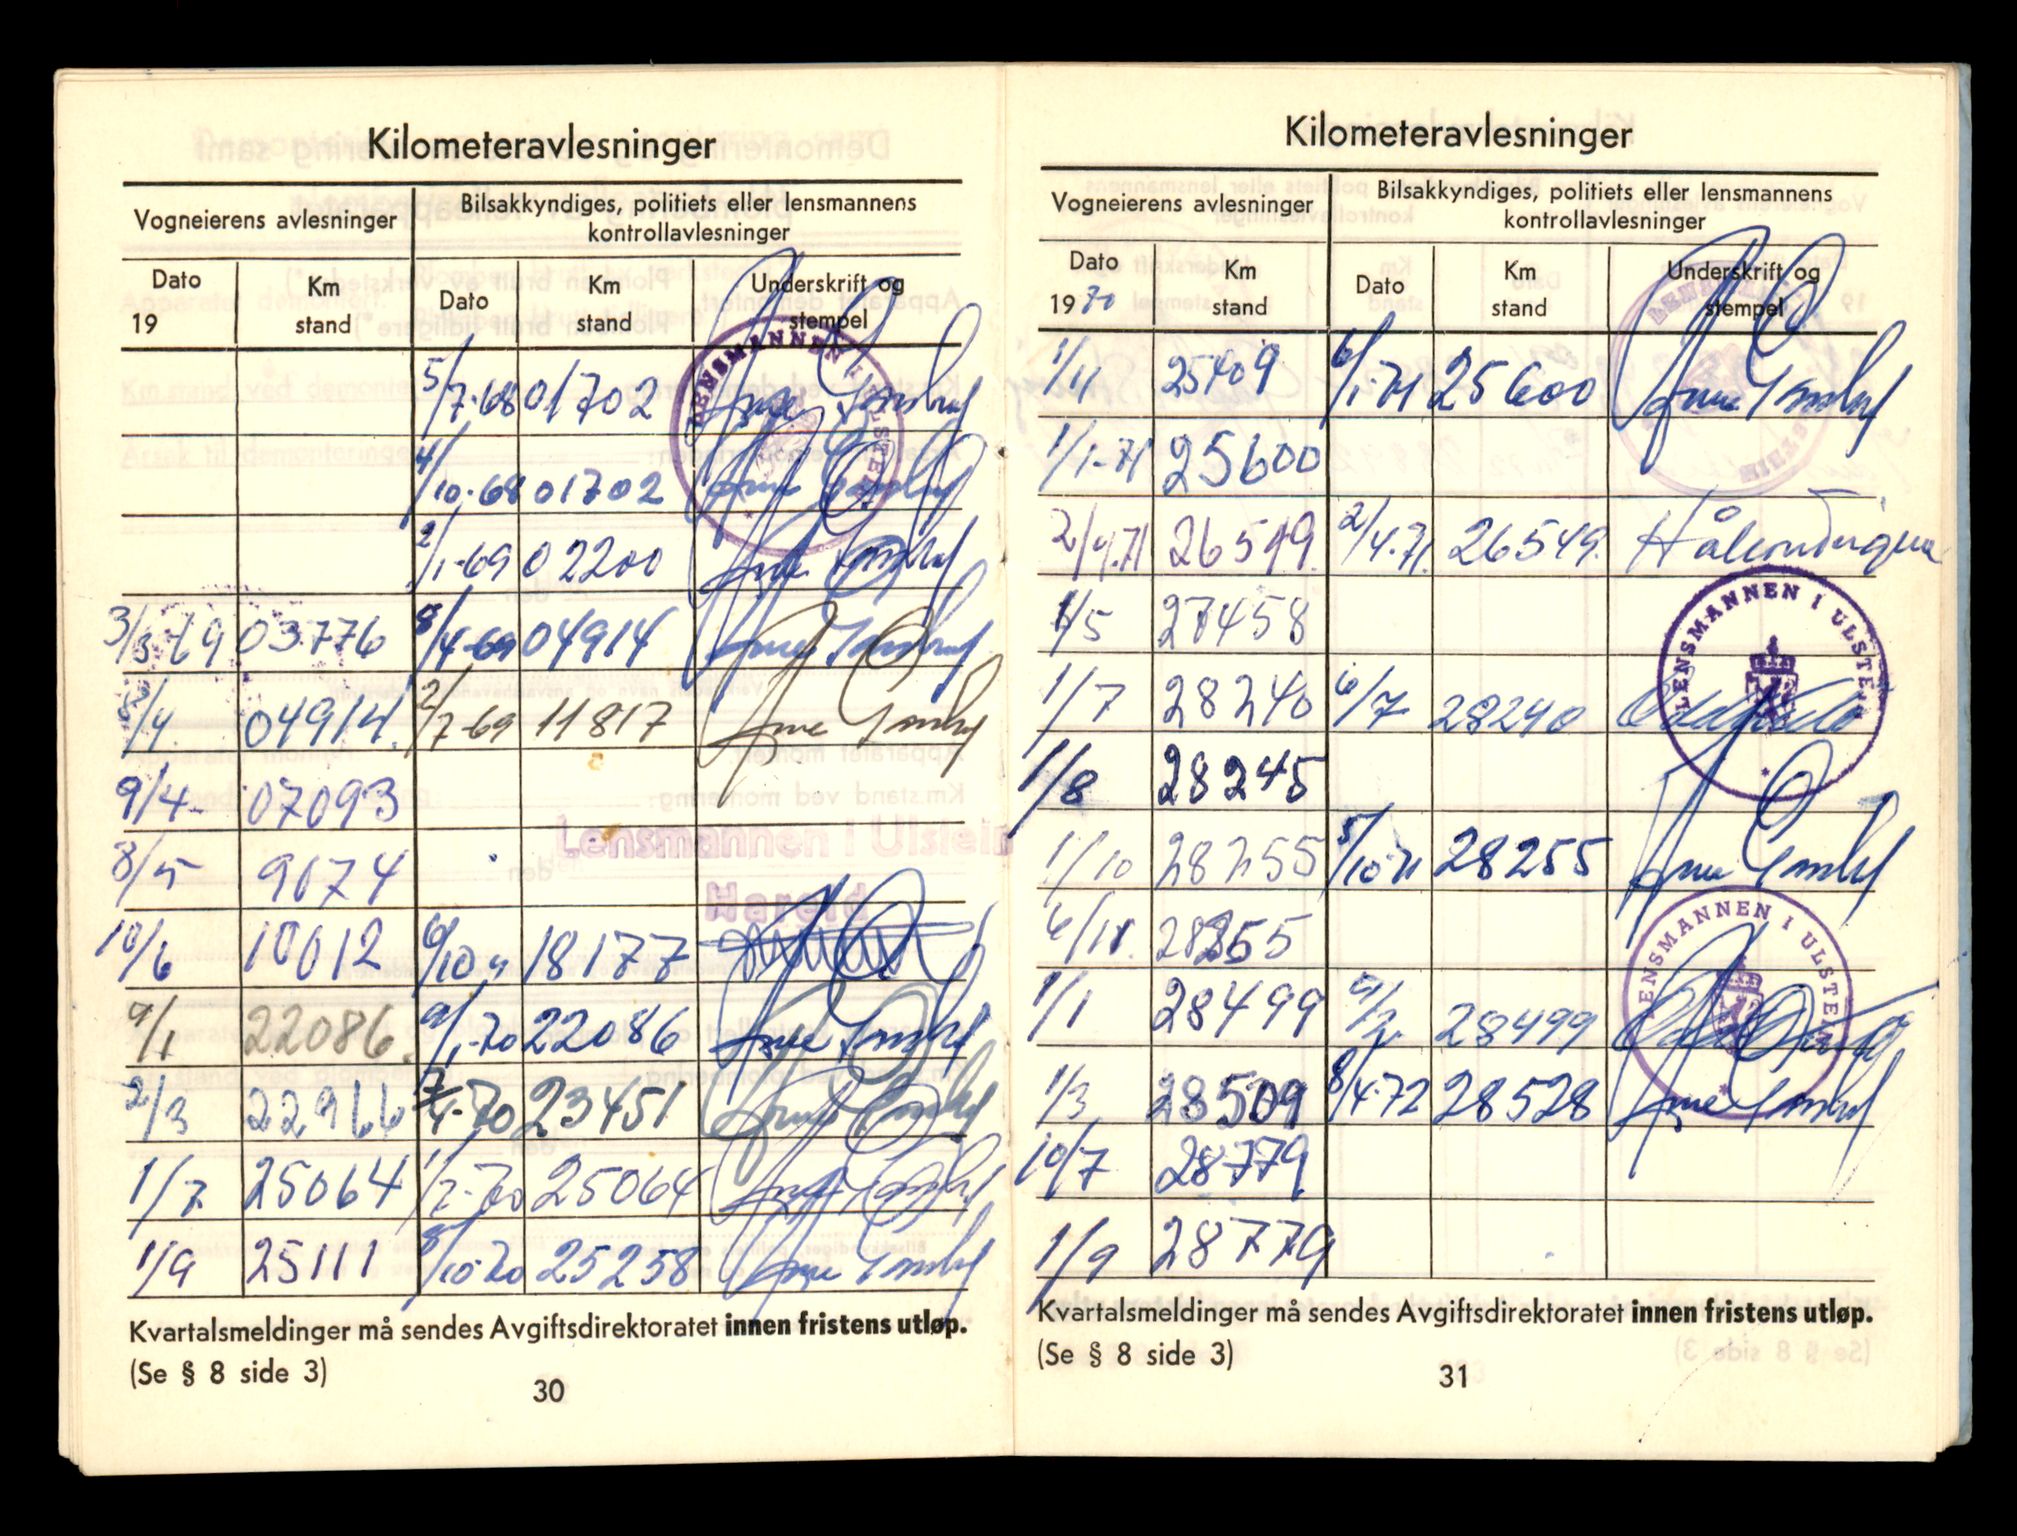 Kilometeravlesninger
Vogneierens avlesninger
Bilsakkyndiges, politiets eller lensmannens
kontrollavlesninger
Dato
19
Km
stand
Dato
Km
stand
Underskrift og
stempel
5/7-68 01702
LENSMANNEN I ULSTEIN
4/10-68 01702
2/1-69 02200
3/3-69 03776 8/4-69 04914
8/4 04914. 2/7-69 11817
9/4- 07093
8/5 9074
Lensmannen i Ulstein
Hareid
10/6 10012 6/10 18177
9/1 22086. 9/1-70 22086
2/3 22966 7/4-70 23451
1/7 25064 1/7-70 25064
1/9 25111 8/10-70 25258
Kvartalsmeldinger må sendes Avgiftsdirektoratet innen fristens utløp.
(Se § 8 side 3)
30
Kilometeravlesninger
Vogneierens avlesninger
Bilsakkyndiges, politiets eller lensmannens
kontrollavlesninger
Dato
1970
Km
stand
Dato
Km
stand
Underskrift og
stempel
1/11 25409 6/1-71 25600
1/1-71 25600
2/4.71 26549. 2/4.71. 26549.
1/5 27458
LENSMANNEN I ULSTEIN
1/7 28240 6/7 28240
1/8 28245
1/10 28255 5/10-71 28255
6/11. 28255
LENSMANNEN I ULSTEIN
1/1 28499 28499
1/3 28509 8/4-72 28528
10/7 28779
1/9 28779
Kvartalsmeldinger må sendes Avgiftsdirektoratet innen fristens utløp.
(Se § 8 side 3)
31